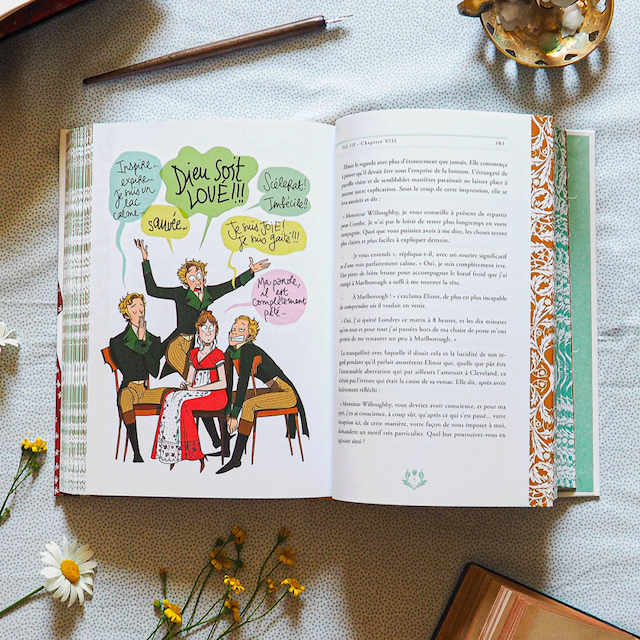 Inspire...
expire...
Je suis un
lac
calme...
Dieu soit
LOUÉ!!!
Scélérat!
Imbécile!!
sauvée...
Je suis JOIE!
Je suis gaité!!!
Ma parole,
il est
complètement
pété...
Vol. III - Chapitre VIII
381
Elinor le regarda avec plus d'étonnement que jamais. Elle commença
à penser qu'il devait être sous l'emprise de la boisson. L'étrangeté de
pareille visite et de semblables manières paraissait ne laisser place à
aucune autre explication. Sous le coup de cette impression, elle se
leva aussitôt et dit :
« Monsieur Willoughby, je vous conseille à présent de repartir
pour Combe. Je n'ai pas le loisir de rester plus longtemps en votre
compagnie. Quoi que vous puissiez avoir à me dire, les choses seront
plus claires et plus faciles à expliquer demain.
— Je vous entends », répliqua-t-il, avec un sourire significatif
et d'une voix parfaitement calme. « Oui, je suis complètement ivre.
Une pinte de bière brune pour accompagner le bœuf froid que j'ai
mangé à Marlborough a suffi à me tourner la tête.
— À Marlborough ! » s'exclama Elinor, de plus en plus incapable
de comprendre où il voulait en venir.
« Oui. J'ai quitté Londres ce matin à 8 heures, et les dix minutes
qu'en tout et pour tout j'ai passées hors de ma chaise de poste m'ont
permis de me restaurer un peu à Marlborough. »
La tranquillité avec laquelle il disait cela et la lucidité de son re-
gard pendant qu'il parlait assurèrent Elinor que, quelle que pût être
l'inexcusable aberration qui par ailleurs l'amenait à Cleveland, ce
n'était pas l'ivresse qui était la cause de sa venue. Elle dit, après avoir
brièvement réfléchi :
« Monsieur Willoughby, vous devriez avoir conscience, et pour ma
part, j'en ai conscience, à coup sûr, qu'après ce qui s'est passé... votre
irruption ici, de cette manière, votre façon de vous imposer à moi,
demandent un motif très particulier. Quel but poursuivez-vous en
agissant ainsi ?